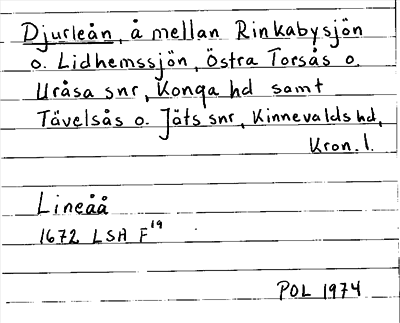 Djurleån, å mellan Rinkabysjön
o. Lidhemssjön, Östra Torsås o.
Uråsa snr, Konga hd samt
Tävelsås o. Jäts snr, Kinnevalds hd,
Kron. l.
Lineåå
1672 LSA F¹⁹
POL 1974